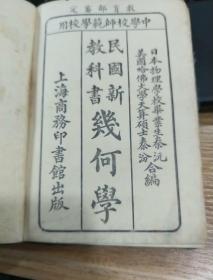 教育部審定
中學校師範學校用
日本物理學校畢業生秦沅
美國哈佛大學天算碩士秦汾
合編
民國新
教科書
幾何學
上海商務印書館出版